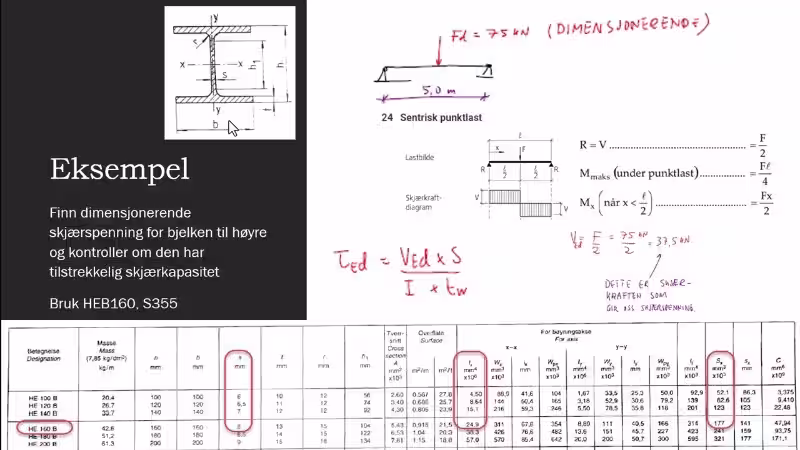 y
s
x x
s
h₁
h
t
y
b
Eksempel
Finn dimensjonerende
skjærspenning for bjelken til høyre
og kontroller om den har
tilstrekkelig skjærkapasitet
Bruk HEB160, S355
Fd = 75 kN (DIMENSJONERENDE)
5,0 m
24 Sentrisk punktlast
Lastbilde
Skjærkraft-
diagram
R = V = F/2
M maks (under punktlast) = Fℓ/4
Mx (når x < ℓ/2) = Fx/2
VEd = F/2 = 75 kN/2 = 37,5 kN
DETTE ER SKJÆR-
KRAFTEN SOM
GIR OSS SKJÆRSPENNING
τEd = VEd × S
I × tw
Betegnelse
Designation
Masse
Mass
(7,85 kg/dm³)
kg/m
h
mm
b
mm
s
mm
t
mm
r
mm
h₁
mm
Tverr-
snitt
Cross
section
A
mm²
x10³
Overflate
Surface
m²/m
m²/t
For bøyningsakse
For axis
x-x
y-y
HE 100 B 20,4 100 100 6 10 12 56 2,60 0,567 27,8 4,50 89,9 41,6 104 1,67 33,5 25,3 50,0 92,9 52,1 86,3 3,375
HE 120 B 26,7 120 120 11 12 74 3,40 0,686 25,7 8,64 144 50,4 165 3,18 52,9 30,6 79,2 139 82,6 105 9,410
HE 140 B 33,7 140 140 7 12 12 92 4,30 0,805 23,9 15,1 216 59,3 246 5,50 78,5 35,8 118 201 123 123 22,48
HE 160 B 42,6 160 160 8 13 15 104 5,43 0,918 21,5 24,9 311 67,8 354 8,89 111 40,5 166 314 177 141 47,94
HE 180 B 51,2 180 180 14 15 122 6,53 1,04 20,3 426 76,6 482 13,6 151 45,7 227 423 241 159 93,75
HE 200 B 61,3 200 200 9 15 18 134 7,81 1,15 18,8 57,0 570 85,4 642 20,0 200 50,7 300 595 321 177 171,1